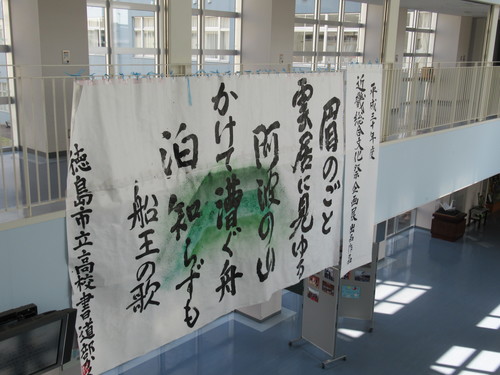 平成三十年度
近畿総合文化祭企画展出品作品
眉のごと
雲居に見ゆる
阿波の山
かけて漕ぐ舟
泊知らずも
船王の歌
徳島市立高校書道部